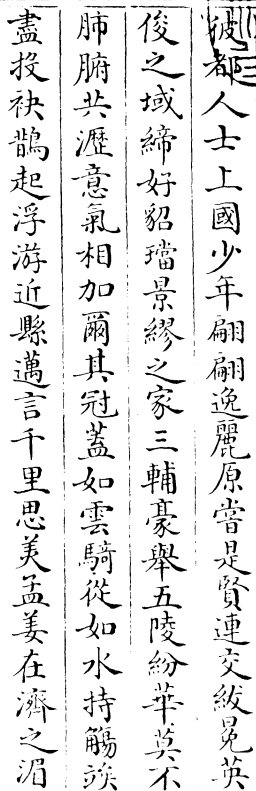 彼都人士上國少年翩翩逸麗原嘗是賢連交紱冕英
俊之域締好貂璫景繆之家三輔豪舉五陵紛華莫不
肺腑共瀝意氣相加爾其冠蓋如雲騎從如水持觴竢
盡投袂鵲起浮游近縣邁言千里思美孟姜在濟之湄